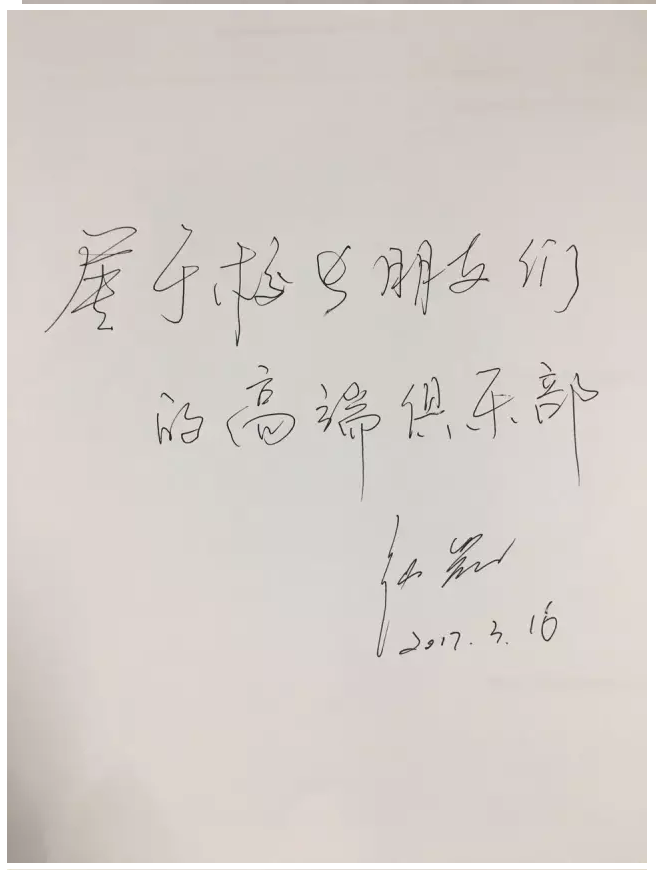 属于校长朋友们
的高端俱乐部
2017.3.16